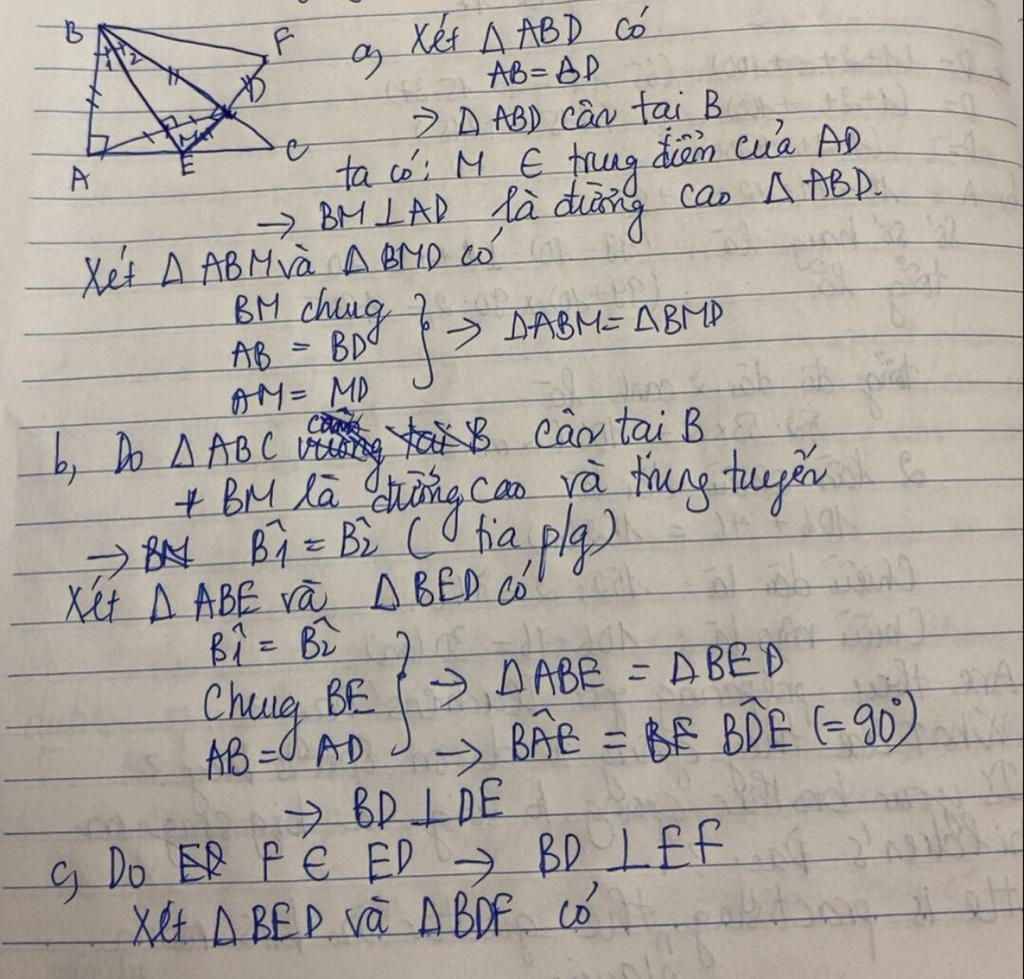 B
F
D
M
A
E
C
1 2
a, Xét Δ ABD có
AB = BD
→ Δ ABD cân tại B
ta có: M ∈ trung điểm của AD
→ BM ⊥ AD là đường cao Δ ABD.
Xét Δ ABM và Δ BMD có
BM chung
AB = BD
AM = MD
} → ΔABM = ΔBMD
b, Do Δ ABC cân tại B
+ BM là đường cao và trung tuyến
→ B̂1 = B̂2 ( tia p/g)
Xét Δ ABE và Δ BED có
B̂1 = B̂2
Chung BE
AB = AD
} → ΔABE = ΔBED
→ BÂE = BD̂E (= 90°)
→ BD ⊥ DE
c, Do F ∈ ED → BD ⊥ EF
Xét Δ BED và Δ BDF có